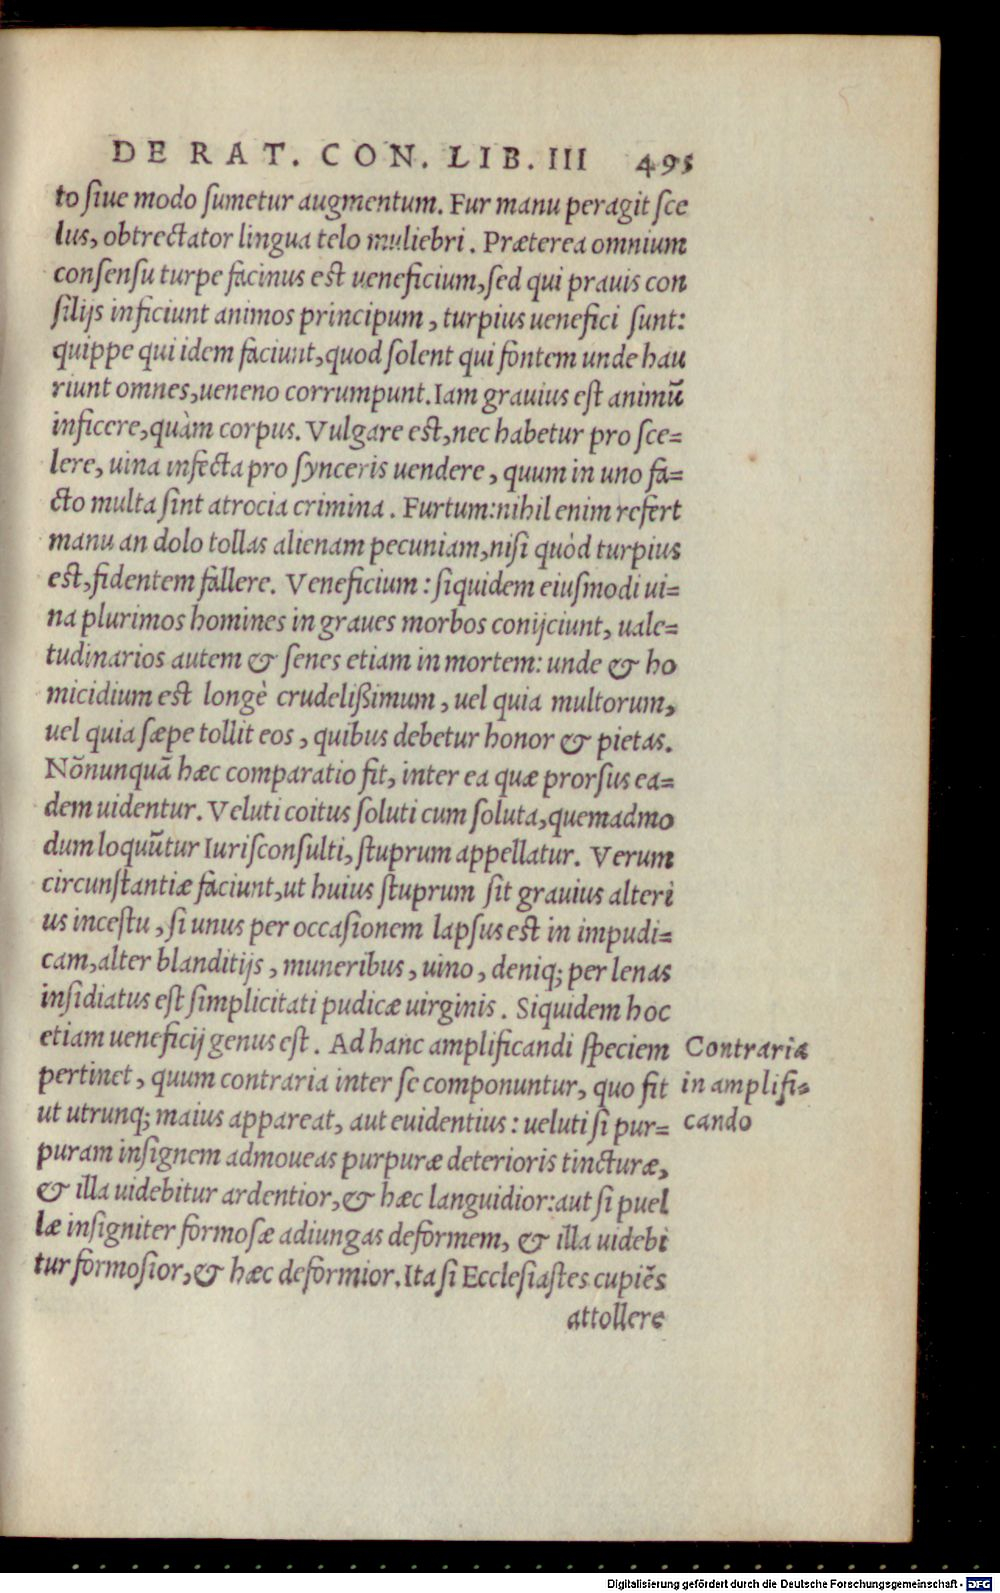 DE RAT. CON. LIB. III 495
to ſiue modo ſumetur augmentum. Fur manu peragit ſce
lus, obtrectator lingua telo muliebri. Præterea omnium
conſenſu turpe facinus eſt ueneficium, ſed qui prauis con
ſilijs inficiunt animos principum, turpius uenefici ſunt:
quippe qui idem faciunt, quod ſolent qui fontem unde hau
riunt omnes, ueneno corrumpunt. Iam grauius eſt animũ
inficere, quàm corpus. Vulgare eſt, nec habetur pro ſce=
lere, uina infecta pro ſynceris uendere, quum in uno fa=
cto multa ſint atrocia crimina. Furtum: nihil enim refert
manu an dolo tollas alienam pecuniam, niſi quòd turpius
eſt, fidentem fallere. Veneficium: ſiquidem eiuſmodi ui=
na plurimos homines in graues morbos conijciunt, uale=
tudinarios autem & ſenes etiam in mortem: unde & ho
micidium eſt longè crudelißimum, uel quia multorum,
uel quia ſæpe tollit eos, quibus debetur honor & pietas.
Nõnunquã hæc comparatio fit, inter ea quæ prorſus ea=
dem uidentur. Veluti coitus ſoluti cum ſoluta, quemadmo
dum loquũtur Iuriſconſulti, ſtuprum appellatur. Verum
circunſtantiæ faciunt, ut huius ſtuprum ſit grauius alteri
us inceſtu, ſi unus per occaſionem lapſus eſt in impudi=
cam, alter blanditijs, muneribus, uino, deniq; per lenas
inſidiatus eſt ſimplicitati pudicæ uirginis. Siquidem hoc
etiam ueneficij genus eſt. Ad hanc amplificandi ſpeciem
pertinet, quum contraria inter ſe componuntur, quo fit
ut utrunq; maius appareat, aut euidentius: ueluti ſi pur=
puram inſignem admoueas purpuræ deterioris tincturæ,
& illa uidebitur ardentior, & hæc languidior: aut ſi puel
læ inſigniter formoſæ adiungas deformem, & illa uidebi
tur formoſior, & hæc deformior. Ita ſi Eccleſiaſtes cupiẽs
attollere
Contraria
in amplifi=
cando
Digitalisierung gefördert durch die Deutsche Forschungsgemeinschaft - DFG